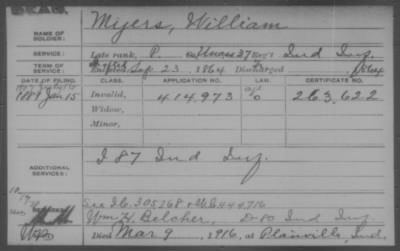 DEAD.
NAME OF SOLDIER: Myers, William
SERVICE: Late rank, P. Unass 27 Reg't Ind Inf.
TERM OF SERVICE: Enlisted Sep 23 1864 Discharged
DATE OF FILING. CLASS. APPLICATION NO. LAW. CERTIFICATE NO.
1889 Jan 15 Invalid, 414,973 263,622
Widow,
Minor,
ADDITIONAL SERVICES: I 87 Ind Inf.
See I.C. 305268 & M.C. 444716
Wm. H. Belcher, D-80 Ind Inf.
Died Mar 9, 1916, at Plainville, Ind.